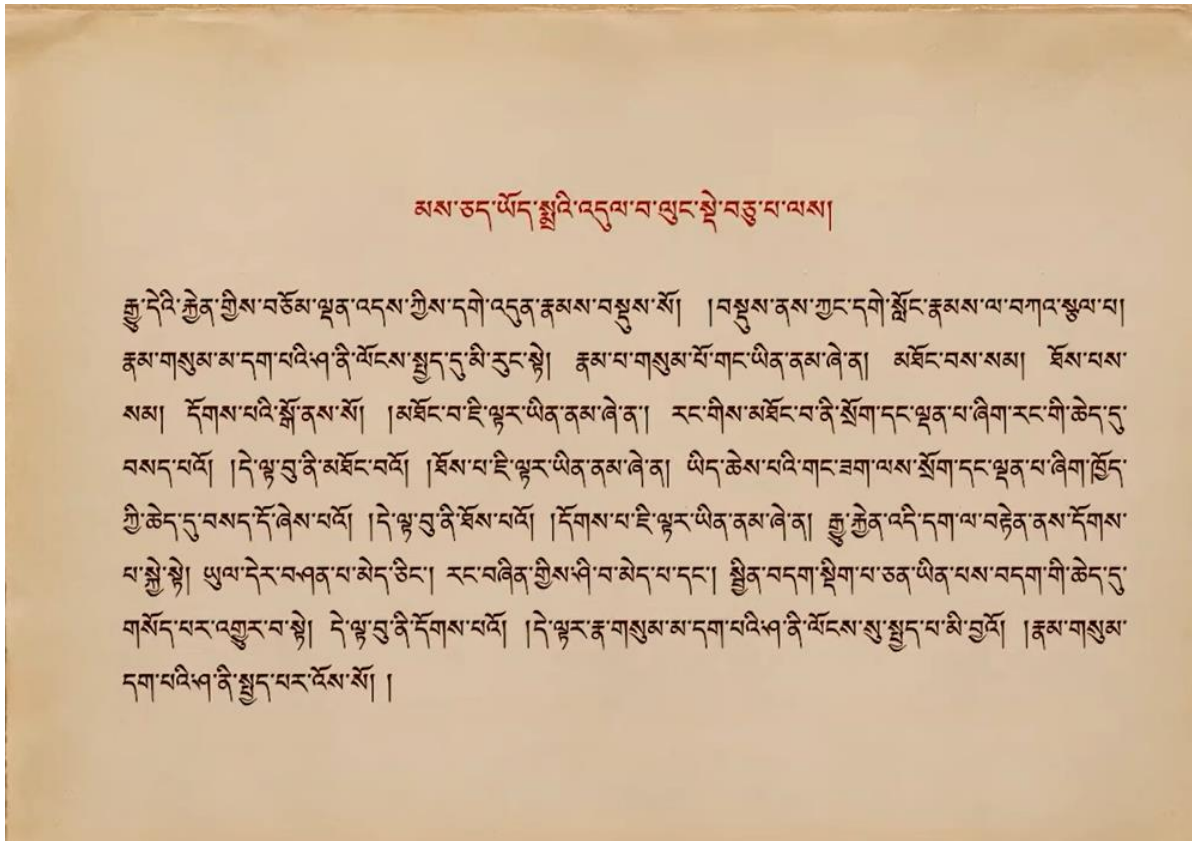 མས་ཅད་ཡོད་སྨྲའི་འདུལ་བ་ལུང་སྡེ་བཅུ་པ་ལས།
རྒྱུ་དེའི་རྐྱེན་གྱིས་བཅོམ་ལྡན་འདས་ཀྱིས་དགེ་འདུན་རྣམས་བསྡུས་སོ། །བསྡུས་ནས་ཀྱང་དགེ་སློང་རྣམས་ལ་བཀའ་སྩལ་པ།
རྣམ་གསུམ་མ་དག་པའི་ཤ་ནི་ལོངས་སྤྱད་དུ་མི་རུང་སྟེ། རྣམ་པ་གསུམ་པོ་གང་ཡིན་ནམ་ཞེ་ན། མཐོང་བས་སམ། ཐོས་པས་
སམ། དོགས་པའི་སྒོ་ནས་སོ། །མཐོང་བ་ཇི་ལྟར་ཡིན་ནམ་ཞེ་ན་། རང་གིས་མཐོང་བ་ནི་སྲོག་དང་ལྡན་པ་ཞིག་རང་གི་ཆེད་དུ་
བསད་པའོ། །དེ་ལྟ་བུ་ནི་མཐོང་བའོ། །ཐོས་པ་ཇི་ལྟར་ཡིན་ནམ་ཞེ་ན། ཡིད་ཆེས་པའི་གང་ཟག་ལས་སྲོག་དང་ལྡན་པ་ཞིག་ཁྱོད་
ཀྱི་ཆེད་དུ་བསད་དོ་ཞེས་པའོ། །དེ་ལྟ་བུ་ནི་ཐོས་པའོ། །དོགས་པ་ཇི་ལྟར་ཡིན་ནམ་ཞེ་ན། རྒྱུ་རྐྱེན་འདི་དག་ལ་བརྟེན་ནས་དོགས་
པ་སྐྱེ་སྟེ། ཡུལ་དེར་བཤན་པ་མེད་ཅིང་། རང་བཞིན་གྱིས་ཤི་བ་མེད་པ་དང་། སྦྱིན་བདག་སྡིག་པ་ཅན་ཡིན་པས་བདག་གི་ཆེད་དུ་
གསོད་པར་འགྱུར་བ་སྟེ། དེ་ལྟ་བུ་ནི་དོགས་པའོ། །དེ་ལྟར་རྣ་གསུམ་མ་དག་པའི་ཤ་ནི་ལོངས་སུ་སྤྱད་པ་མི་བྱའོ། །རྣམ་གསུམ་
དག་པའི་ཤ་ནི་སྤྱད་པར་འོས་སོ། །